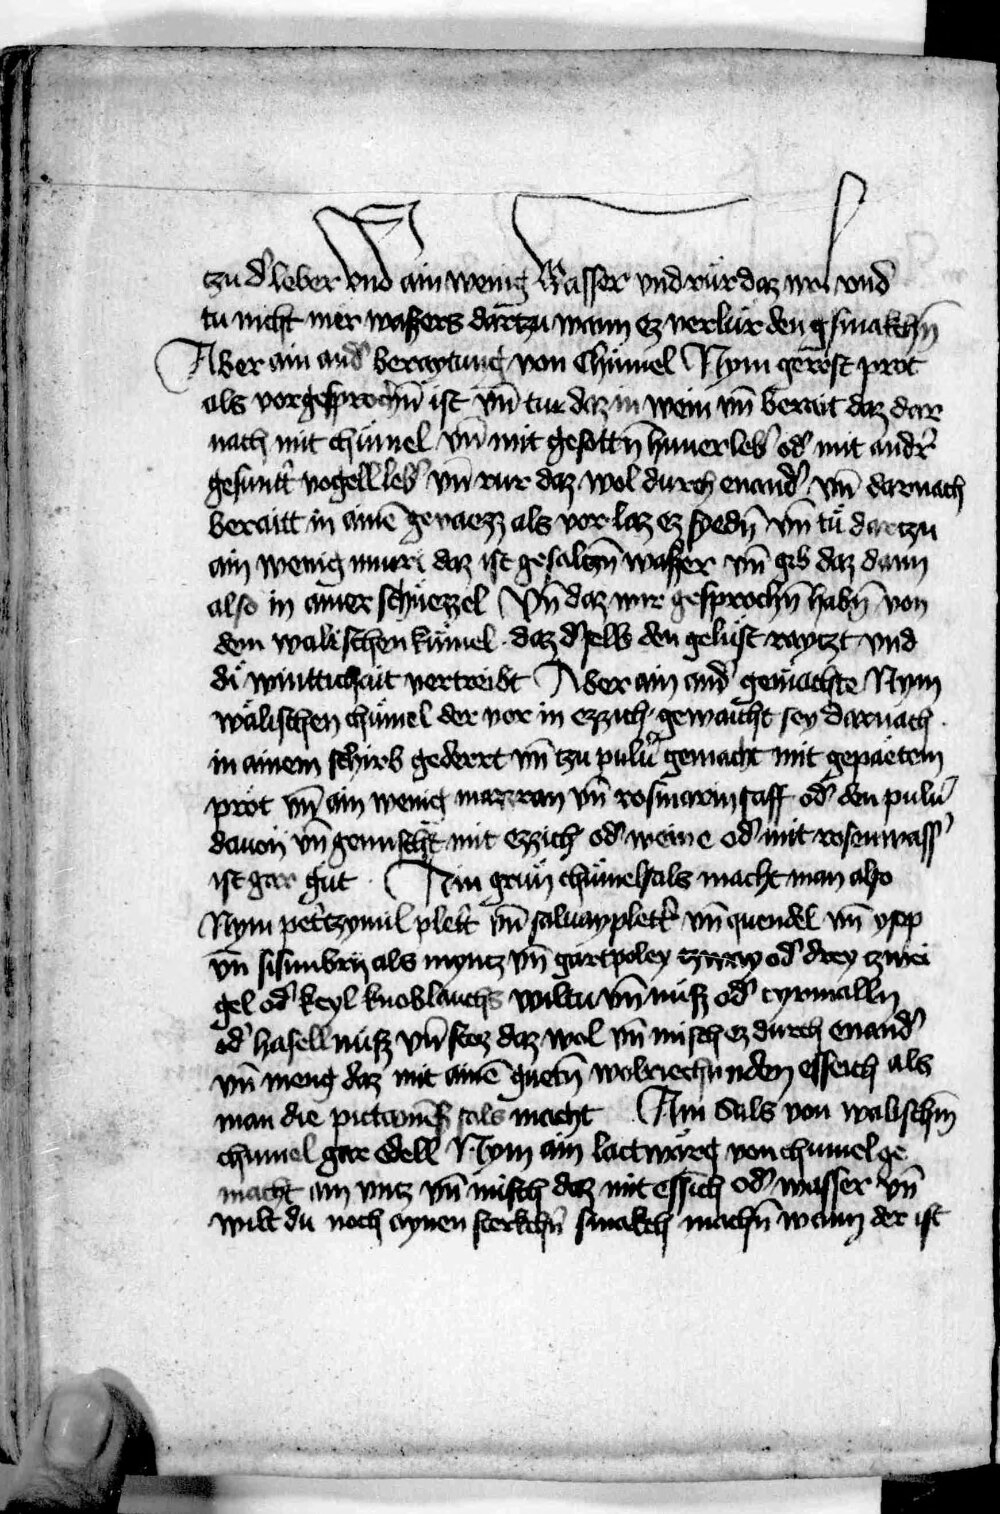 tzu dˀ leber vnd ain wenig Wasser vnd rür daz vnd
tu nicht mer waszers dartzu wann ez verlür den gsmakchn̄
Aber ain andˀ beraytung von Chümel Nym geröst prot
als vorgesprochn̄ ist vn̄ tue daz in wein vn̄ berait daz dar
nach mit chümel vn̄ mit gesottn̄ hünerlebˀ odˀ mit andrˀ
gesuntˀ vogell lebˀ vn̄ rur daz wol durch enandˀ vn̄ darnach
beraitt in ainē gevaezz als vor laz ez syedn̄ vn̄ tů dartzu
ain wenig muri daz ist gesaltzn̄ waszer vn̄ gib daz dann
also in ainer schüezzel Vn̄ daz wir gesprochn̄ habn̄ von
dem walischen kümel daz dˀselb den gelust raytzt vnd
di winttichait vertreibt Aber ain andˀ gemächte Nym
wälischen chümel der vor in ezzich gewaicht sey darnach
in ainem schirb gederrt vn̄ tzu puluˀ gemacht mit gepaetem
prot vn̄ ain wenig mazzran vn̄ rosmarin saff odˀ den puluˀ
dauon vn̄ gemischt mit ezzich odˀ weine odˀ mit rosenwassˀ
ist gar gut Ain grün chümelsals macht man also
Nym petˀtzymil pletˀ vn̄ saluaypletˀ vn̄ quendel vn̄ ysop
vn̄ sisimbrij als myntz vn̄ gartpoley tzway odˀ drey tzwei
gel odˀ keyl knoblauchs wiltu vn̄ nusz odˀ cyrnalln
odˀ hasell nusz vn̄ stoz daz wol vn̄ misch ez durch enandˀ
vn̄ meng daz mit ainē guetn̄ wolriechunden esseich als
man die sals macht Ain Sals von walischn̄
chumel gar edell Nym ain lactwarg von chumel ge
macht ain vntz vn̄ misch daz mit essich odˀ wasser vn̄
wilt du noch aynen sterkchn̄ smakch machn̄ wann der ist